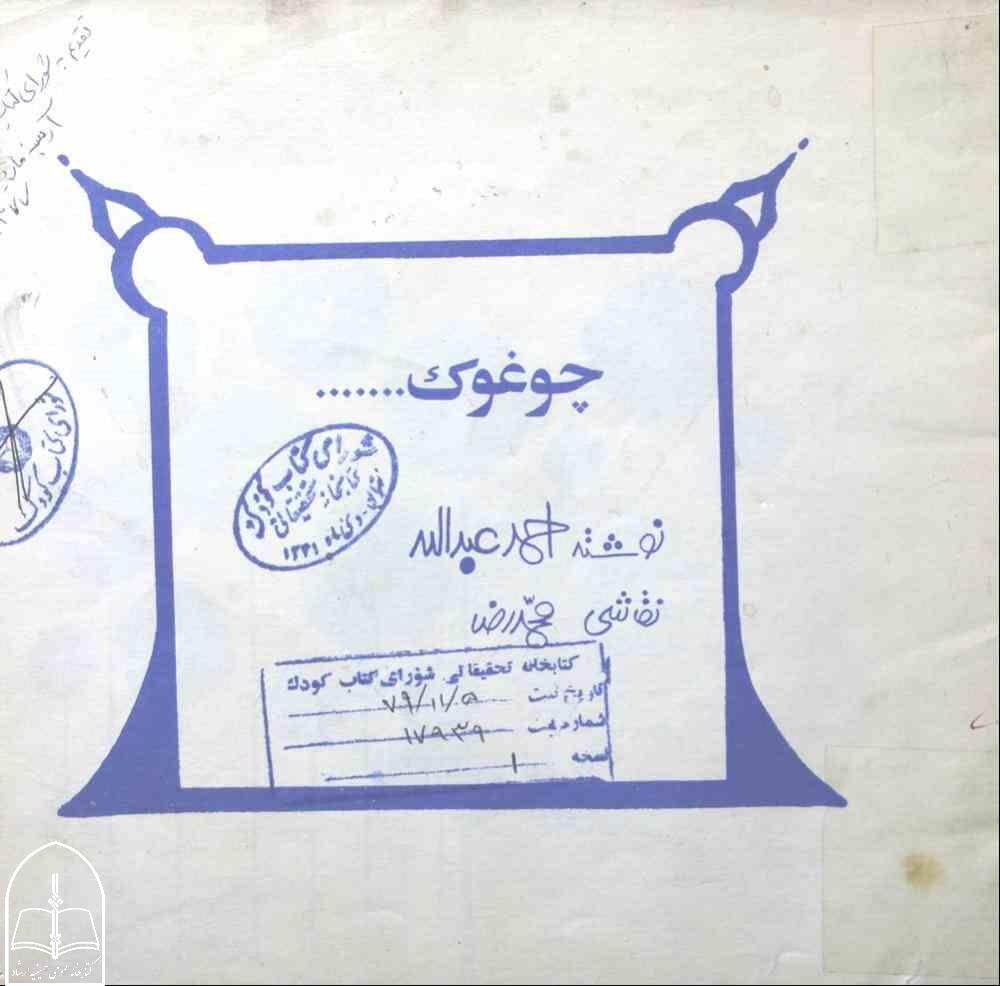 تقدیم به
شورای کتاب
چوغوك.......
شورای کتاب کودک
کتابخانه تحقیقاتی
تهران - دی ماه ۱۳۴۱
شورای کتاب کودک
نوشته احمد عبدالله
نقاشی محمدرضا
کتابخانه تحقیقاتی شورای کتاب کودك
تاریخ ثبت ۷۹/۱۱/۵
شماره ثبت ۱۷۹۳۹
نسخه ۱
کتابخانه عمومی حسینیه ارشاد